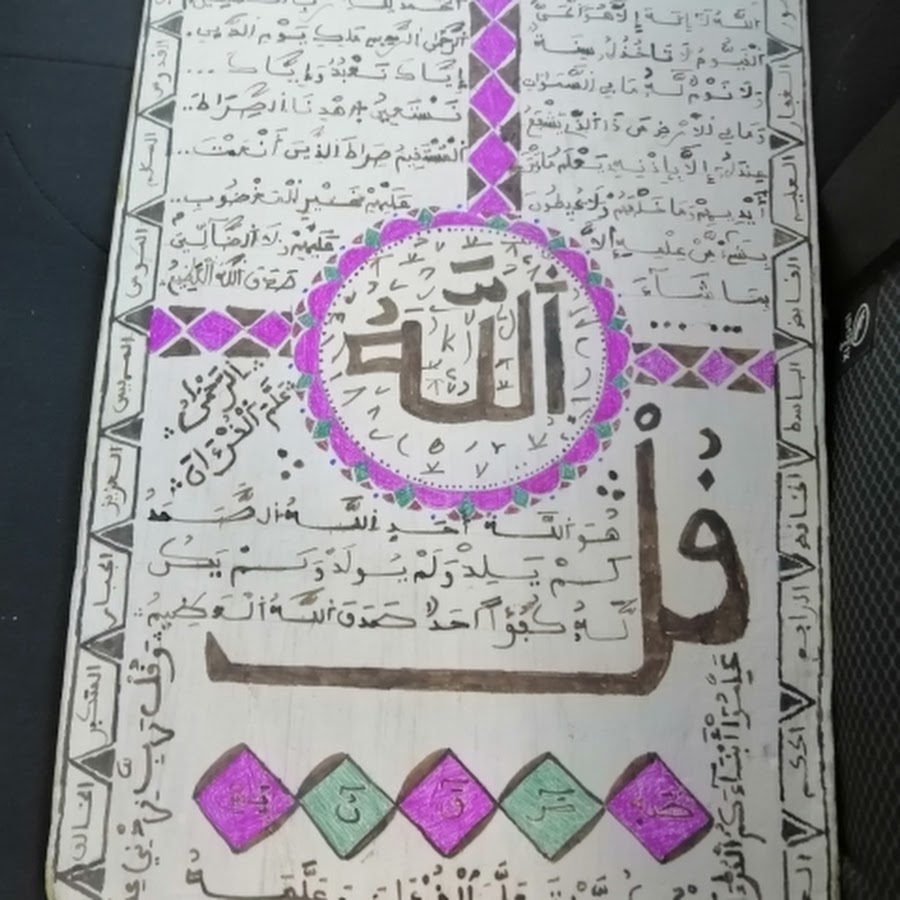 الله لا إله إلا هو الحي
القيوم لا تأخذه سنة
ولا نوم له ما في السموات
وما في الأرض من ذا الذي يشفع
عنده إلا بإذنه يعلم ما بين
أيديهم وما خلفهم ولا يحيطون
بشيء من علمه إلا
بما شاء
الرحمن الرحيم ملك يوم الدين.
إياك نعبد وإياك ...
نستعين اهدنا الصراط..
المستقيم صراط الذين أنعمت..
عليهم غير المغضوب..
عليهم ولا الضالين
صدق الله العظيم
اللّٰهُ
الرحمن
علم القرآن
قل
هو الله أحد الله الصمد
لم يلد ولم يولد ولم يكن
له كفؤا أحد صدق الله العظيم
وقل رب زدني
علموا أبناءكم القرآن
القدوس
السلام
المؤمن
المهيمن
العزيز
الجبار
المتكبر
الخالق
الغفار
العليم
القابض
الباسط
الخافض
الرافع
الحكم